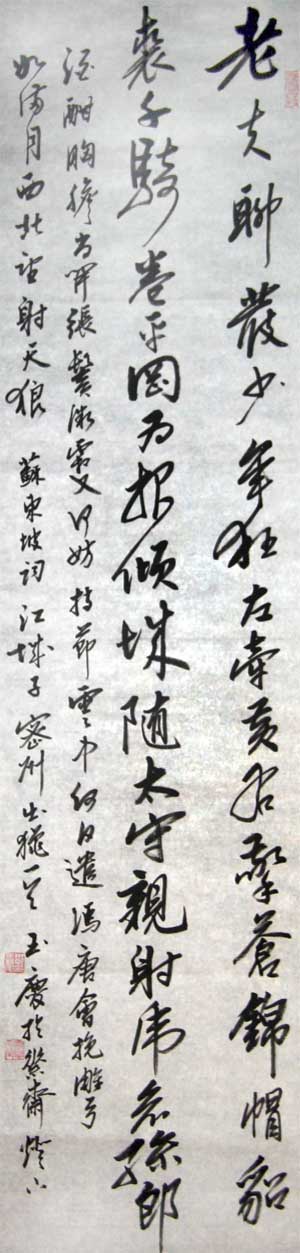 老夫聊發少年狂左牽黃右擎蒼錦帽貂
裘千騎卷平岡為報傾城隨太守親射虎看孫郎
酒酣胸膽尚開張鬢微霜又何妨持節雲中何日遣馮唐會挽雕弓
如滿月西北望射天狼 蘇東坡詞江城子密州出獵一首 玉慶於齋燈下